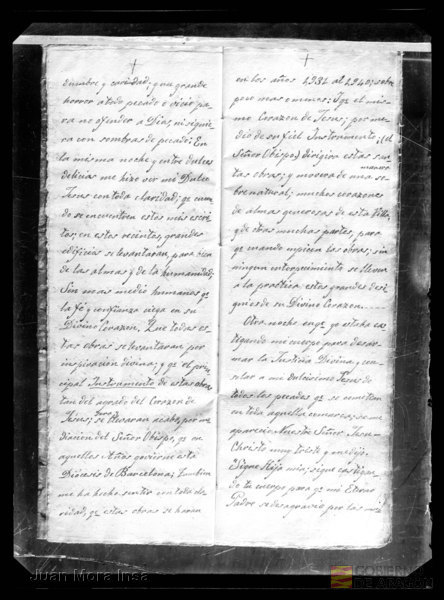 +
dumbre y caridad; y un grande
horror a todo pecado o vivir pa-
ra no ofender a Dios, ni siquie-
ra con sombras de pecado: En
la misma noche y entre dulces
delicias me hizo ver mi Dulce
Jesus con toda claridad; qe cuan-
do se encuentren estos mis escri-
tos; en estos recintos, grandes
edificios se levantaran, para bien
de las almas y de la humanidad;
Sin mas medio humanos qe
la fé y confianza ciega en su
Divino Corazon. Que todas es-
tas obras se levantaran por
inspiracion divina; y qe el prin-
cipal Instrumento de estas obras
tan del agrado del Corazon de
Jesus; se llevaran acabo, por me-
diacion del Señor Obispo, qe en
aquellos Años govierne esta
Diócesis de Barcelona; Tambien
me ha hecho sentir con toda cla-
ridad, qe estas obras se haran
+
en los años 1931 al 1940; sobre
poco mas o menos: Y qe el mis-
mo Corazon de Jesus; por me-
dio de su fiel Instrumento; (el
Señor Obispo) dirigira estas san-
tas obras; y movera de una manera so-
brenatural; muchos corazones
de almas generosas de esta Villa,
y de otras muchas partes, para
qe cuando empiecen las obras; sin
ninguna entorpecimiento se lleven
a la practica estos grandes desi-
gnios de su Divino Corazon.
Otra noche en qe yo estaba cas-
tigando mi cuerpo para desar-
mar la Justicia Divina, y con-
solar a mi dulcisimo Jesus de
todos los pecados qe se cometian
en toda aquella comarca; se me
aparecio Nuestro Señor Jesu-
Christo muy triste y me dijo.
"Sigue Hija mia; sigue castigan-
do tu cuerpo para qe mi Eterno
Padre se desagravie por las
Juan Mora Insa
GOBIERNO
DE ARAGON